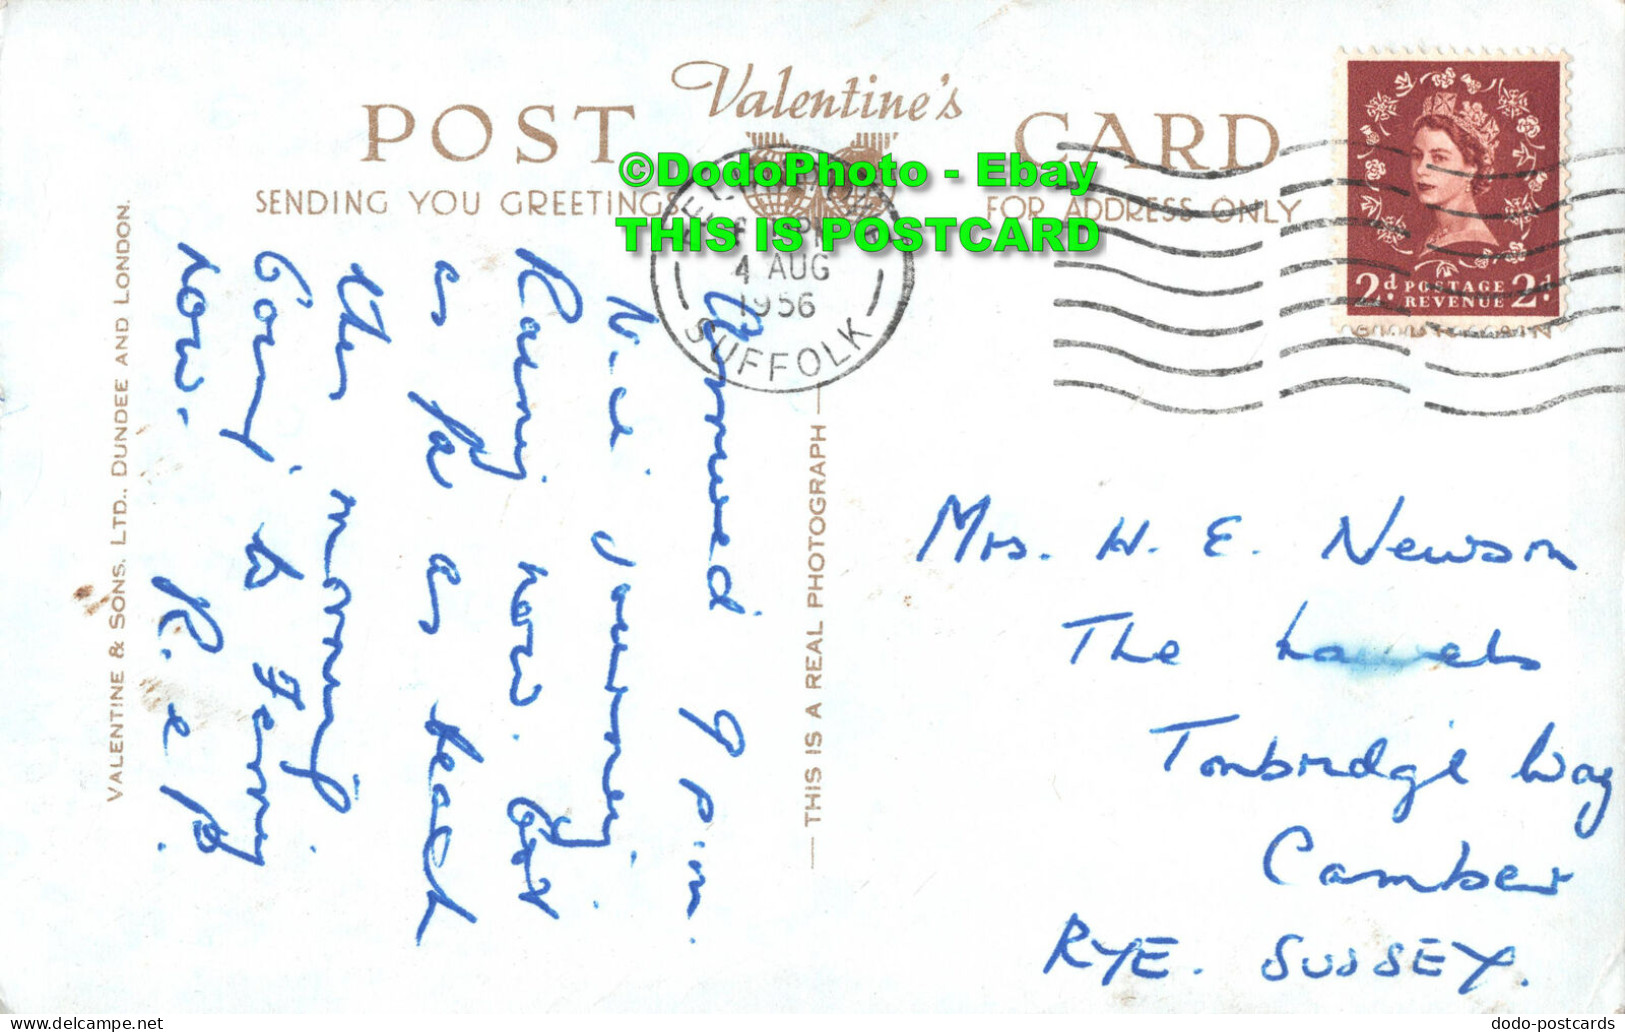 POST Valentine's CARD
SENDING YOU GREETINGS
FOR ADDRESS ONLY
©DodoPhoto - Ebay
THIS IS POSTCARD
4 AUG
1956
SUFFOLK
2d POSTAGE 2d
REVENUE
VALENTINE & SONS. LTD., DUNDEE AND LONDON.
THIS IS A REAL PHOTOGRAPH
Arrived 9 p.m.
Nice journey.
Rainy now. Got
as far as beach
this morning
Going to Ferry
now.
Mrs. H. E. Newson
The Laurels
Tonbridge Way
Camber
RYE. SUSSEX.
dodo-postcards
delcampe.net